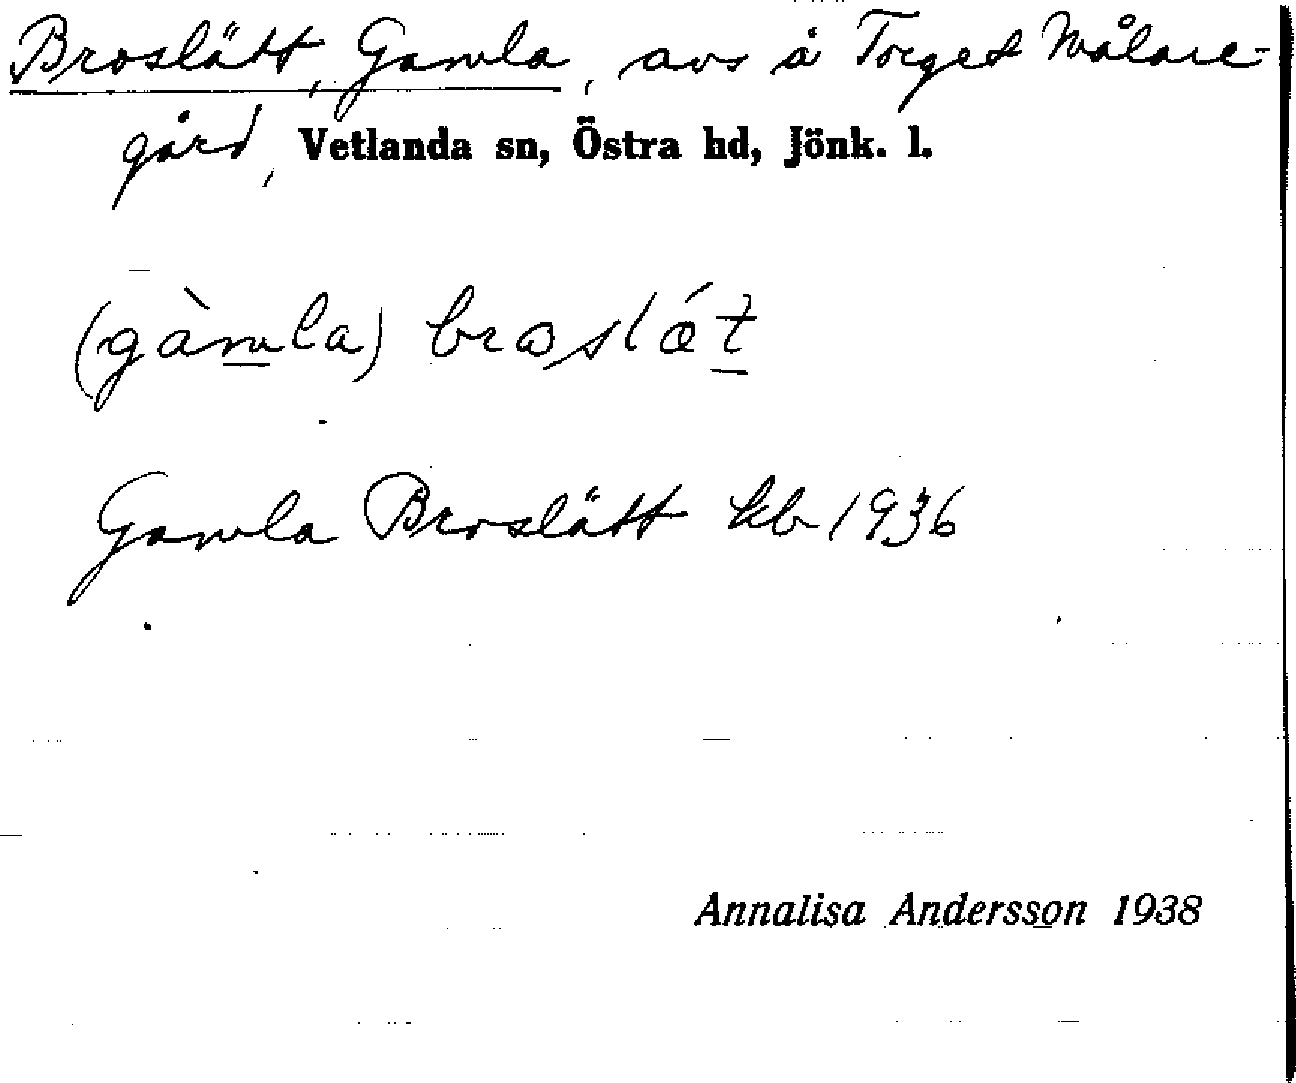 Broslätt, Gamla, avs å Torget Målare-
gård, Vetlanda sn, Östra hd, Jönk. l.
(gàmla) broslǽt
Gamla Broslätt kb 1936
Annalisa Andersson 1938